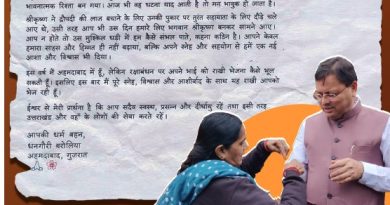 भावनात्मिक रिश्ता बन गया। आज भी वह घटना याद आती है तो मन भावुक हो जाता है।
श्रीकृष्ण ने द्रौपदी की लाज बचाने के लिए उनकी पुकार पर तुरंत सहायता के लिए दौड़े चले
आए थे, उसी तरह आप भी उस दिन हमारे लिए भगवान श्रीकृष्ण बनकर सामने आए।
आप न होते तो उस मुश्किल घड़ी में हम कैसे संभल पाते, कहना कठिन है। आपने केवल
हमारा साहस और हिम्मत ही नहीं बढ़ाया, बल्कि अपने स्नेह और सहयोग से हमें एक नई
आशा और विश्वास भी दिया।
इस वर्ष मैं अहमदाबाद में हूँ, लेकिन रक्षाबंधन पर अपने भाई को राखी भेजना कैसे भूल
सकती हूँ। इसलिए इस बार मैं पूरे स्नेह, विश्वास और आशीर्वाद के साथ यह राखी आपको
भेज रही हूँ।
ईश्वर से मेरी प्रार्थना है कि आप सदैव स्वस्थ, प्रसन्न और दीर्घायु रहें तथा इसी तरह
उत्तराखंड और वहाँ के लोगों की सेवा करते रहें।
आपकी धर्म बहन,
धनगौरी बरोलिया
अहमदाबाद, गुजरात